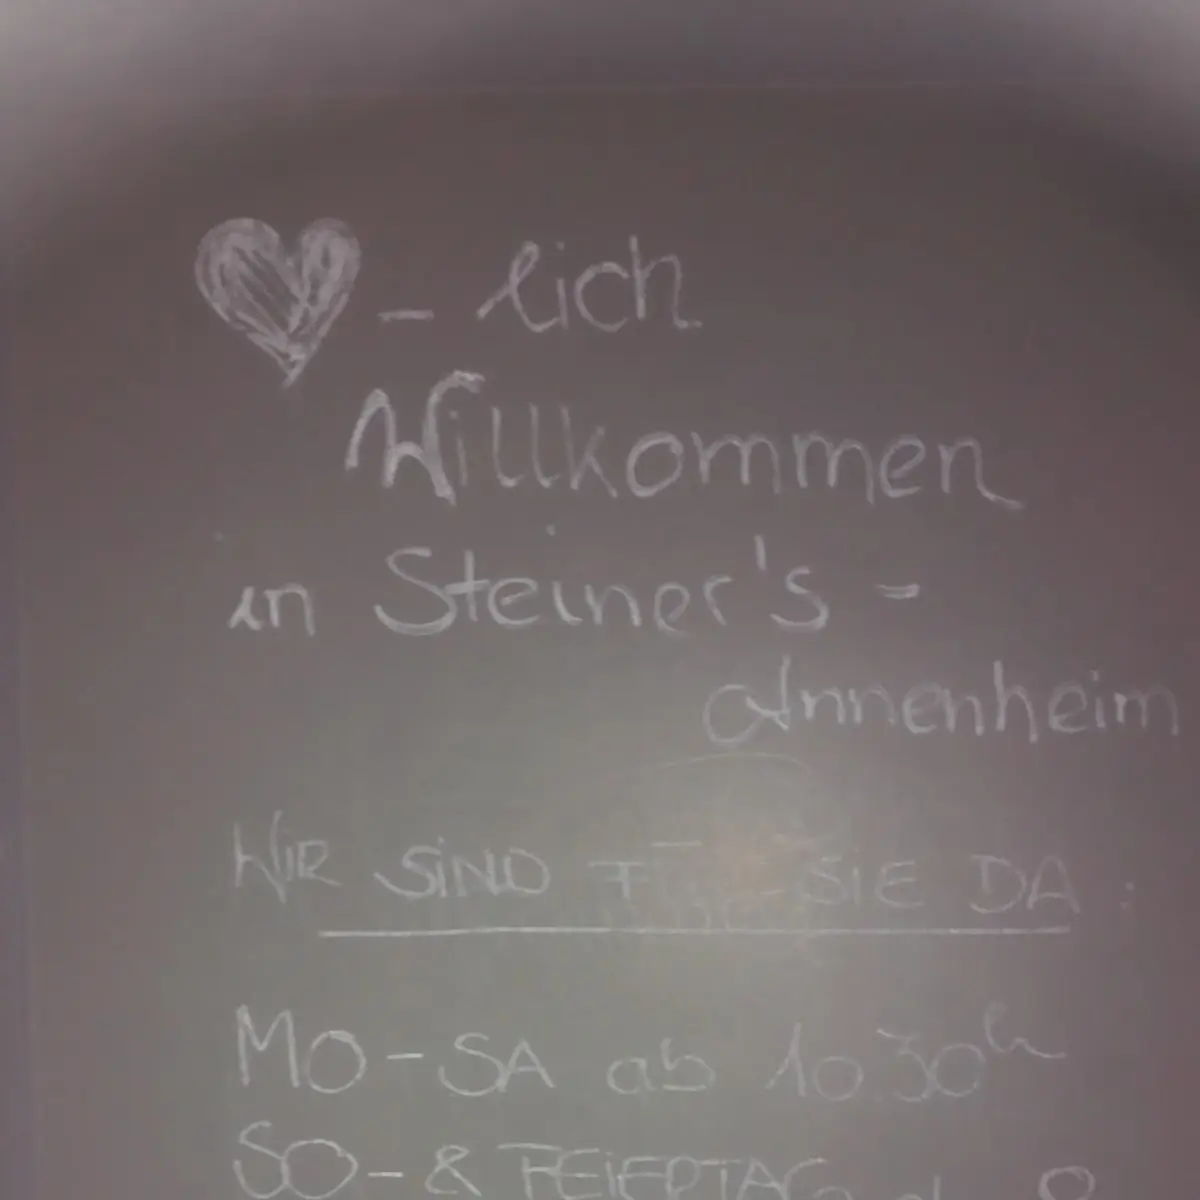 ♥-lich
Willkommen
in Steiner's -
Annenheim
WIR SIND FÜR SIE DA:
MO-SA ab 10.30h
SO- & FEIERTAG